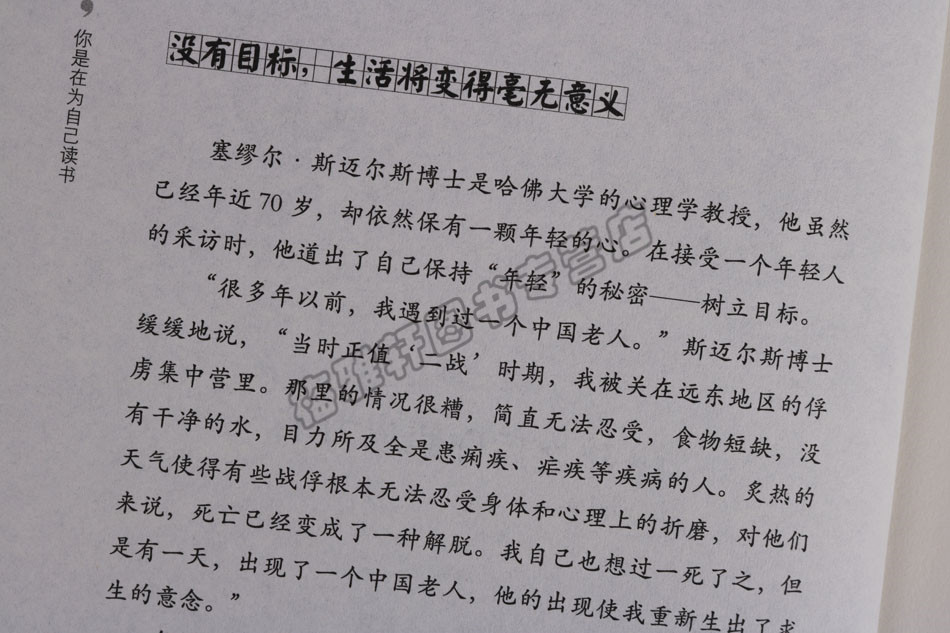 你是在为自己读书
没有目标，生活将变得毫无意义
塞缪尔·斯迈尔斯博士是哈佛大学的心理学教授，他虽然
已经年近70岁，却依然保有一颗年轻的心。在接受一个年轻人
的采访时，他道出了自己保持“年轻”的秘密——树立目标。
“很多年以前，我遇到过一个中国老人。”斯迈尔斯博士
缓缓地说，“当时正值‘二战’时期，我被关在远东地区的俘
虏集中营里。那里的情况很糟，简直无法忍受，食物短缺，没
有干净的水，目力所及全是患痢疾、疟疾等疾病的人。炙热的
天气使得有些战俘根本无法忍受身体和心理上的折磨，对他们
来说，死亡已经变成了一种解脱。我自己也想过一死了之，但
是有一天，出现了一个中国老人，他的出现使我重新生出了求
生的意念。”
轩图书专营店